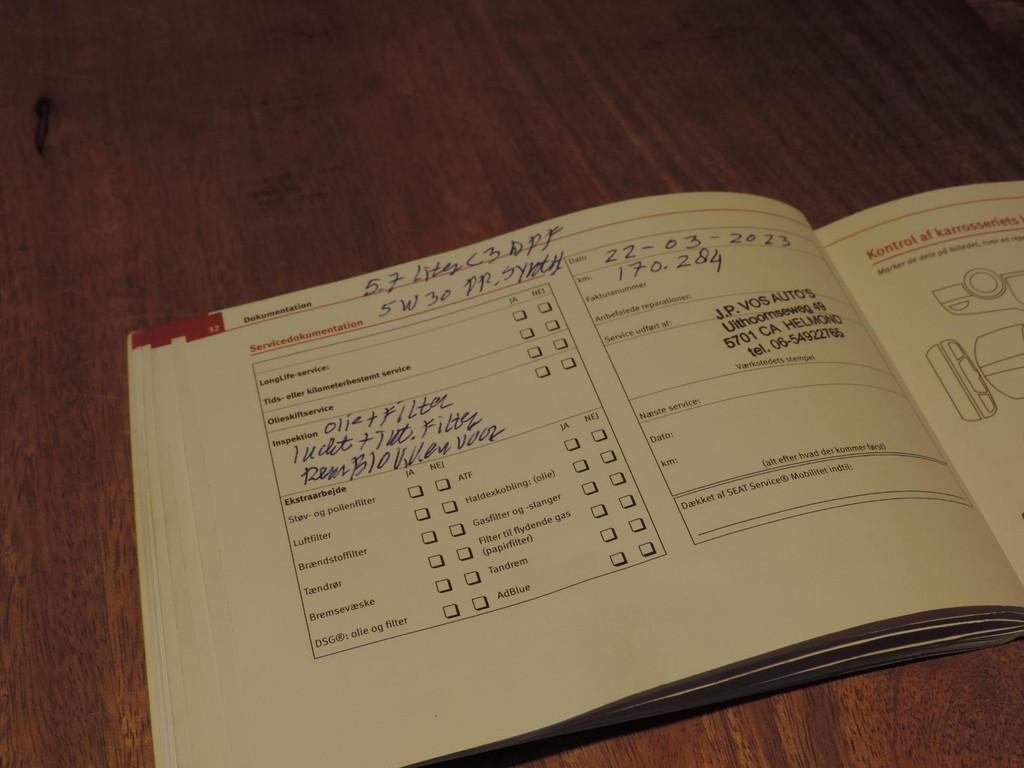 32
Dokumentation
5.7 liter C3 DPF
5W30 PR. SYNTH
Servicedokumentation
JA NEJ
LongLife-service:
Tids- eller kilometerbestemt service
Olieskiftservice
Inspektion olie + Filter
lucht + Int. Filter
Rem Blokken voor
Ekstraarbejde
JA NEJ
JA NEJ
Støv- og pollenfilter
Luftfilter
Brændstoffilter
Tændrør
Bremsevæske
DSG®: olie og filter
ATF
Haldexkobling: (olie)
Gasfilter og -slanger
Filter til flydende gas
(papirfilter)
Tandrem
AdBlue
Dato 22-03-2023
km: 170.284
Fakturanummer
Anbefalede reparationer:
Service udført af:
J.P. VOS AUTO'S
Uithoornseweg 49
5701 CA HELMOND
tel. 06-54922765
Værkstedets stempel
Næste service:
Dato:
km:
(alt efter hvad der kommer først)
Dækket af SEAT Service® Mobilitet indtil:
Kontrol af karrosseriets
Marker de dele på billedet, hvor en